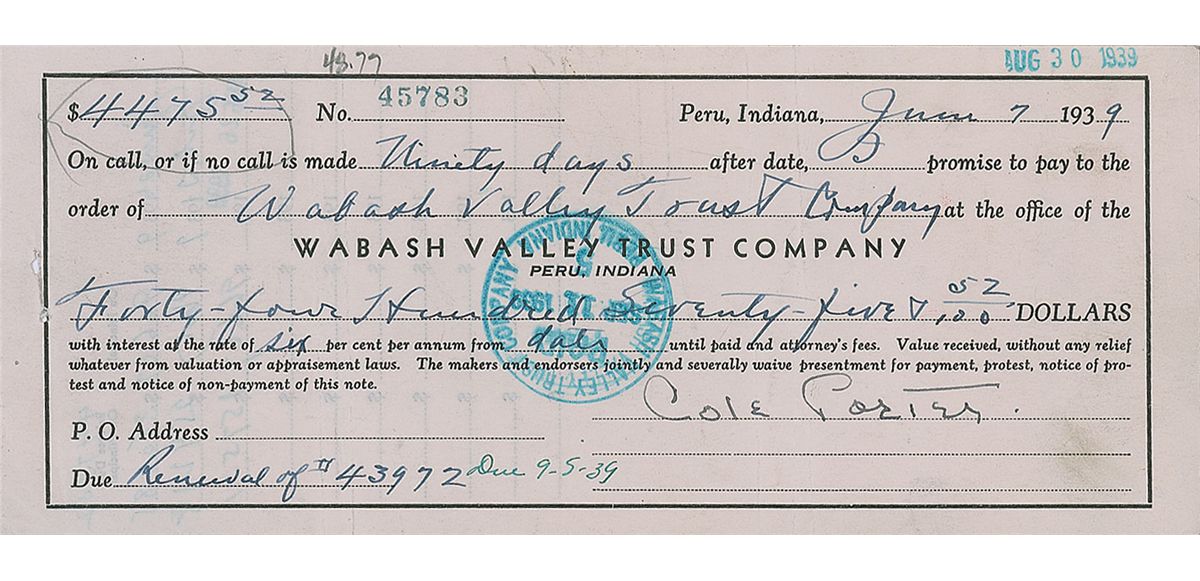 48.77
AUG 30 1939
$4475 52 No. 45783 Peru, Indiana, June 7 1939
On call, or if no call is made Ninety days after date, I promise to pay to the
order of Wabash Valley Trust Company at the office of the
WABASH VALLEY TRUST COMPANY
PERU, INDIANA
Forty-four Hundred Seventy-five & 52/100 DOLLARS
with interest at the rate of six per cent per annum from date until paid and attorney's fees. Value received, without any relief
whatever from valuation or appraisement laws. The makers and endorsers jointly and severally waive presentment for payment, protest, notice of pro-
test and notice of non-payment of this note.
Cole Porter.
P. O. Address
Due Renewal of # 43972 Due 9-5-39
WABASH VALLEY TRUST COMPANY PERU, INDIANA